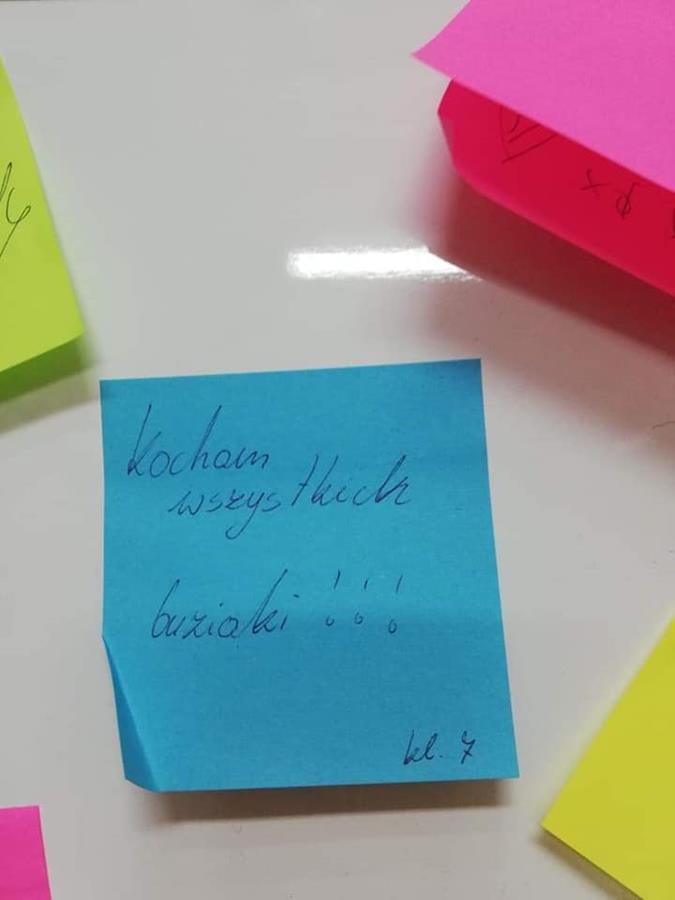 Kocham
wszystkich
buziaki !!!
kl. 7